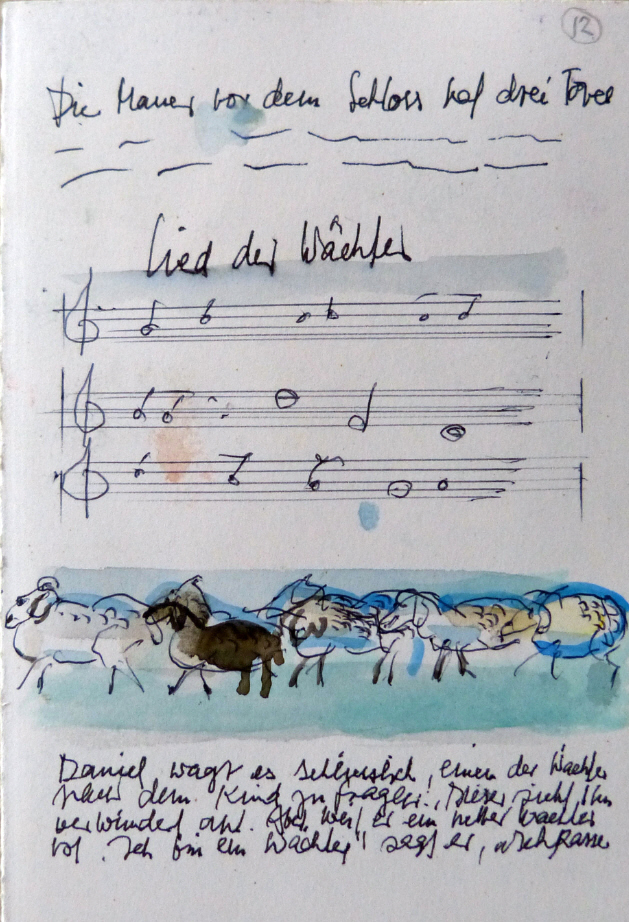 12
Die Mauer vor dem Schloss hat drei Tore
Lied der Wächter
Daniel wagt es schliesslich, einen der Wächter
nach dem Kind zu fragen. Dieser sieht ihn
verwundert an. Aber weil er ein netter Wächter
ist. "Ich bin ein Wächter" sagt er,